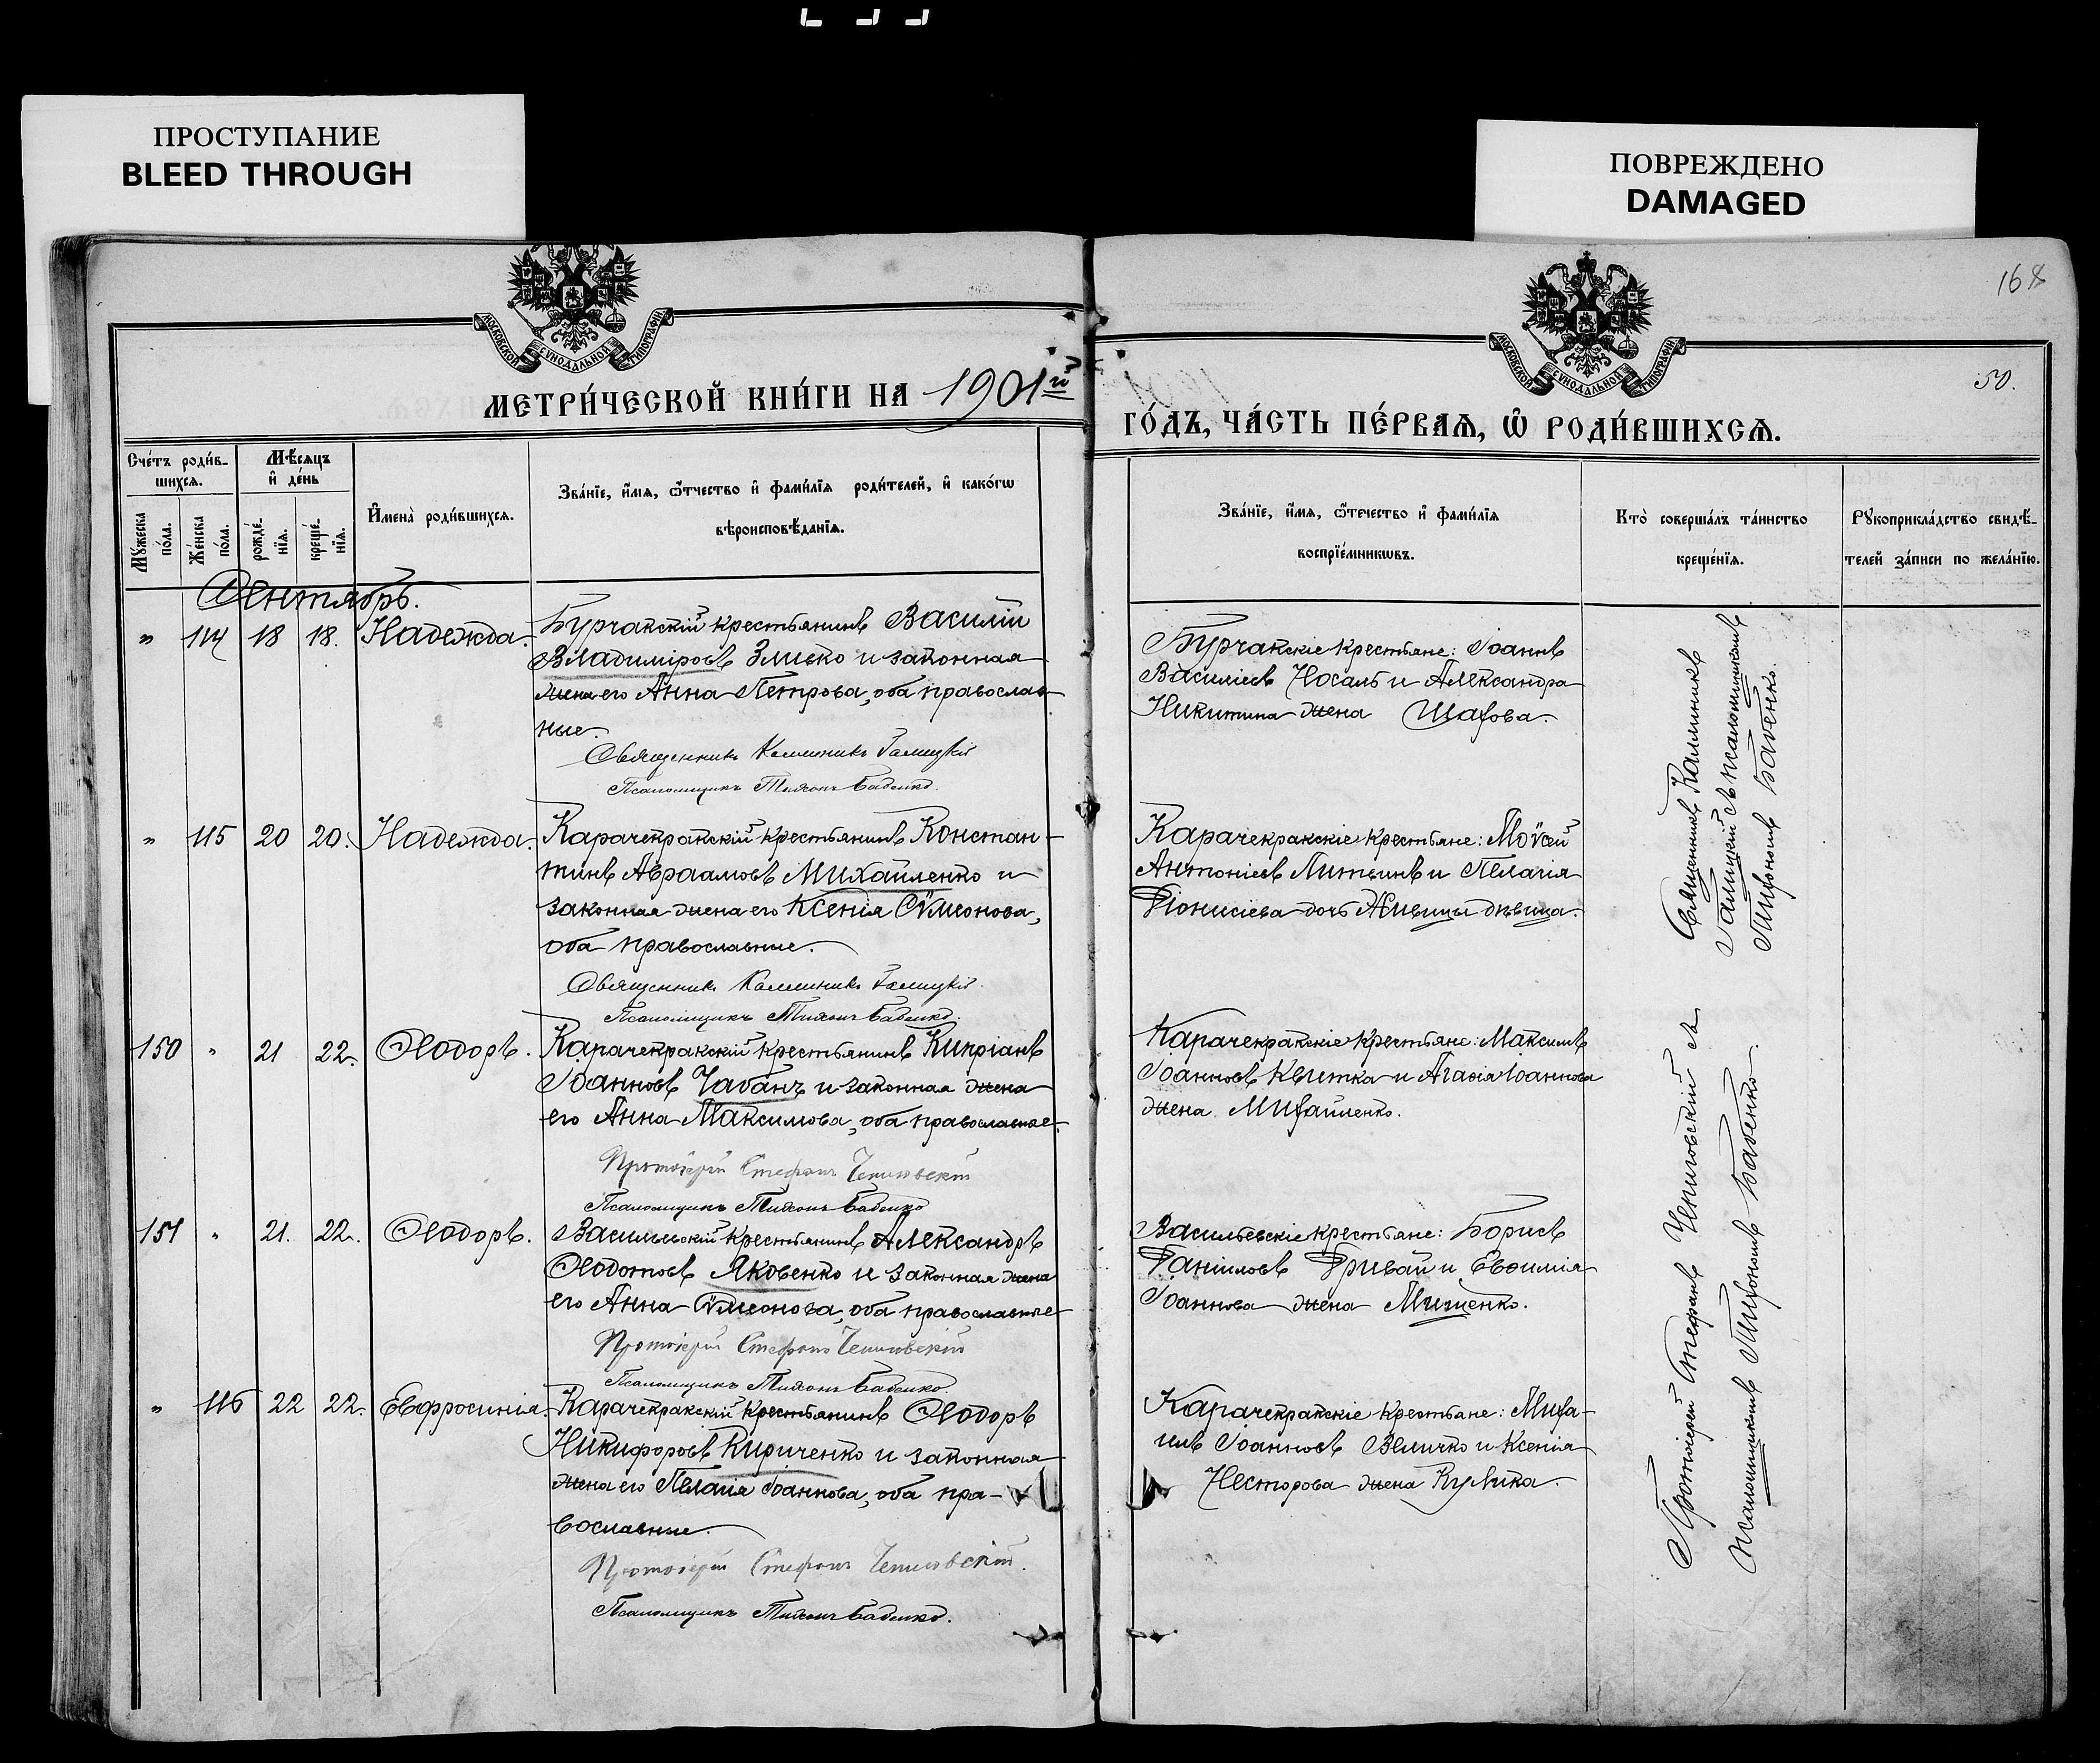 ПРОСТУПАНИЕ
BLEED THROUGH
ПОВРЕЖДЕНО
DAMAGED
168
50.
МОСКОВСКОЙ СѴНОДАЛЬНОЙ ТИПОГРАФІИ
МОСКОВСКОЙ СѴНОДАЛЬНОЙ ТИПОГРАФІИ
МЕТРИ́ЧЕСКОЙ КНИ́ГИ НА 1901й
ГО́ДЪ, ЧА́СТЬ ПЕ́РВАѦ, Ѡ҆ РОДИ́ВШИХСѦ.
Сче́тъ роди́в-
шихсѧ.
Мꙋ́жеска по́ла.
Же́нска по́ла.
Мѣ́сѧцъ
и҆ де́нь
рожде́-
нїѧ.
креще́-
нїѧ.
И҆мена̀ роди́вшихсѧ.
Зва́нїе, и҆́мѧ, ѻ҆́тчество и҆ фамѝлїѧ роди́телей, и҆ како́гѡ
вѣроисповѣ́данїѧ.
Зва́нїе, и҆́мѧ, ѻ҆́течество и҆ фамѝлїѧ
воспрїе́мникѡвъ.
Кто̀ соверша́лъ та́инство
креще́нїѧ.
Рꙋкоприкла́дство свидѣ́-
телей за́писи по жела́нїю.
Сентябрь.
" 114 18 18. Надежда.
Бурчакскій крестьянинъ Василій
Владиміровъ Змiько и законная
жена его Анна Петрова, оба православ
ные.
Священникъ Каллиникъ Галицкій
Псаломщикъ Тихонъ Бабенко.
Бурчакскіе крестьяне: Іоаннъ
Василіевъ Носаль и Александра
Никитина жена Шахова.
" 115 20 20. Надежда.
Карачекракскій крестьянинъ Констан-
тинъ Авраамовъ Михайленко и
законная жена его Ксенія Сѵмеонова,
оба православные.
Священникъ Каллиникъ Галицкій.
Псаломщикъ Тихонъ Бабенко.
Карачекракскіе крестьяне: Моѵсей
Антоніевъ Литвинъ и Пелагія
Діонисіева дочь Живицы дѣвица.
Священникъ Каллиникъ
Галицкій съ псаломщикомъ
Тихономъ Бабенко.
150 " 21 22. Ѳеодоръ.
Карачекракскій крестьянинъ Кипріанъ
Іоанновъ Чабанъ и законная жена
его Анна Максимова, оба православные.
Протоіерей Стефанъ Черниговскій
Псаломщикъ Тихонъ Бабенко
Карачекракскіе крестьяне: Максимъ
Іоанновъ Квитка и Агаѳія Іоаннова
жена Михайленко.
151 " 21. 22. Ѳеодоръ.
Васильевскій крестьянинъ Александръ
Ѳеодотовъ Яковенко и законная жена
его Анна Сѵмеонова, оба православные
Протоіерей Стефанъ Черниговскій
Псаломщикъ Тихонъ Бабенко.
Васильевскіе крестьяне: Борисъ
Даніиловъ Гривай и Евѳимія
Іоаннова жена Мищенко.
" 116 22 22. Евфросинія.
Карачекракскій крестьянинъ Ѳеодоръ
Никифоровъ Кириченко и законная
жена его Пелагія Іоаннова, оба пра-
вославные.
Протоіерей Стефанъ Черниговскій.
Псаломщикъ Тихонъ Бабенко.
Карачекракскіе крестьяне: Миха-
илъ Іоанновъ Величко и Ксенія
Несторова жена Кулика.
Протоіерей Стефанъ Черниговскій съ
псаломщикомъ Тихономъ Бабенко.